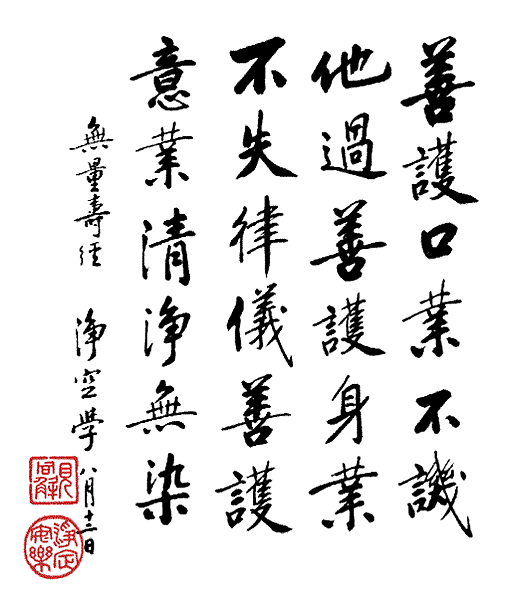 善護口業不譏
他過善護身業
不失律儀善護
意業清淨無染
無量壽經 淨空學
八月十 日